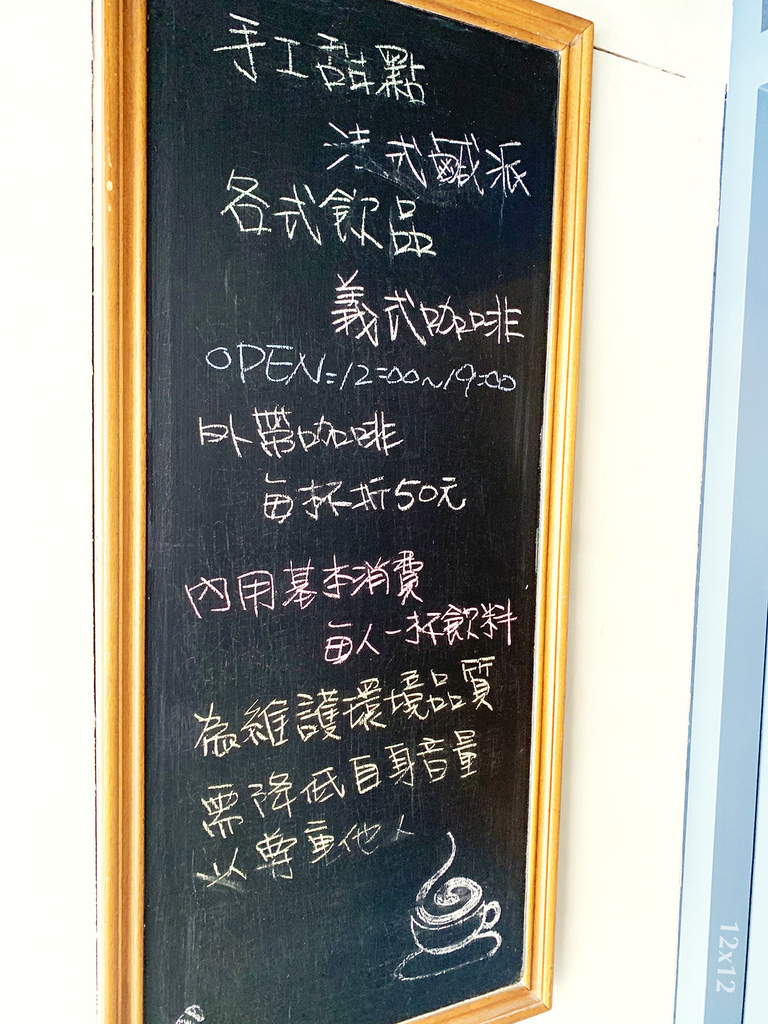 手工甜點
法式鹹派
各式飲品
義式咖啡
OPEN:12:00~19:00
外帶咖啡
每杯折50元
內用基本消費
每人一杯飲料
為維護環境品質
需降低自身音量
以尊重他人
12x12